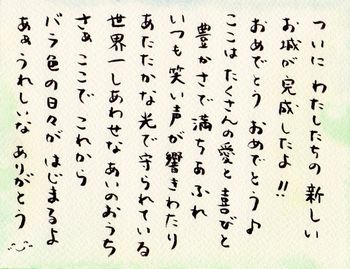 ついに わたしたちの 新しい
お城が 完成したよ!!
おめでとう おめでとう♪
ここは たくさんの愛と 喜びと
豊かさで 満ちあふれ
いつも 笑い声が 響きわたり
あたたかな 光で 守られている
世界一しあわせな あいのおうち
さぁ ここで これから
バラ色の日々が はじまるよ
あぁ うれしいな ありがとう